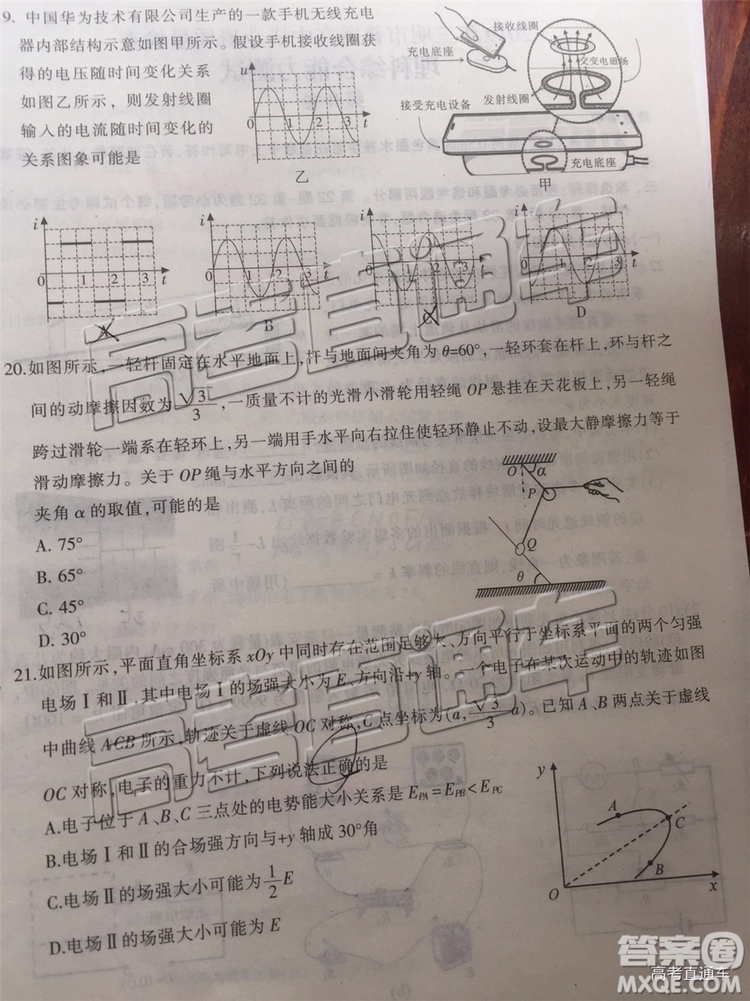 9. 中国华为技术有限公司生产的一款手机无线充电
器内部结构示意如图甲所示。假设手机接收线圈获
得的电压随时间变化关系
如图乙所示，则发射线圈
输入的电流随时间变化的
关系图象可能是
u
0 1 2 3 t
乙
接收线圈
充电底座
交变电磁场
接受充电设备 发射线圈
充电底座
甲
i
0 1 2 3 t
A
i
0 1 2 3 t
B
i
0 1 2 3 t
C
i
0 1 2 3 t
D
20.如图所示,一轻杆固定在水平地面上,杆与地面间夹角为θ=60°,一轻环套在杆上,环与杆之
间的动摩擦因数为√3/3,一质量不计的光滑小滑轮用轻绳OP悬挂在天花板上,另一轻绳
跨过滑轮一端系在轻环上,另一端用手水平向右拉住使轻环静止不动,设最大静摩擦力等于
滑动摩擦力。关于OP绳与水平方向之间的
夹角α的取值,可能的是
A. 75°
B. 65°
C. 45°
D. 30°
O α
P
Q
θ
21.如图所示,平面直角坐标系xOy中同时存在范围足够大、方向平行于坐标系平面的两个匀强
电场Ⅰ和Ⅱ.其中电场Ⅰ的场强大小为E、方向沿+y轴。一个电子在某次运动中的轨迹如图
中曲线ACB所示,轨迹关于虚线OC对称,C点坐标为(a,√3/3 a)。已知A、B两点关于虚线
OC对称,电子的重力不计,下列说法正确的是
A.电子位于A、B、C三点处的电势能大小关系是E_PA=E_PB<E_PC
B.电场Ⅰ和Ⅱ的合场强方向与+y轴成30°角
C.电场Ⅱ的场强大小可能为1/2 E
D.电场Ⅱ的场强大小可能为E
y
A
C
B
O x
高考直通车
高考直通车
答案圈
高考直通车
MXQE.COM